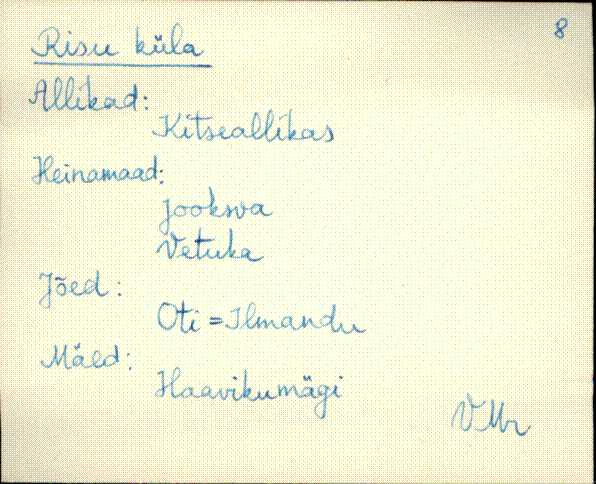 8
Risu küla
Allikad:
Kitseallikas
Heinamaad:
Jooksva
Vetuka
Jõed:
Oti = Ilmandu
Mäed:
Haavikumägi
VMr